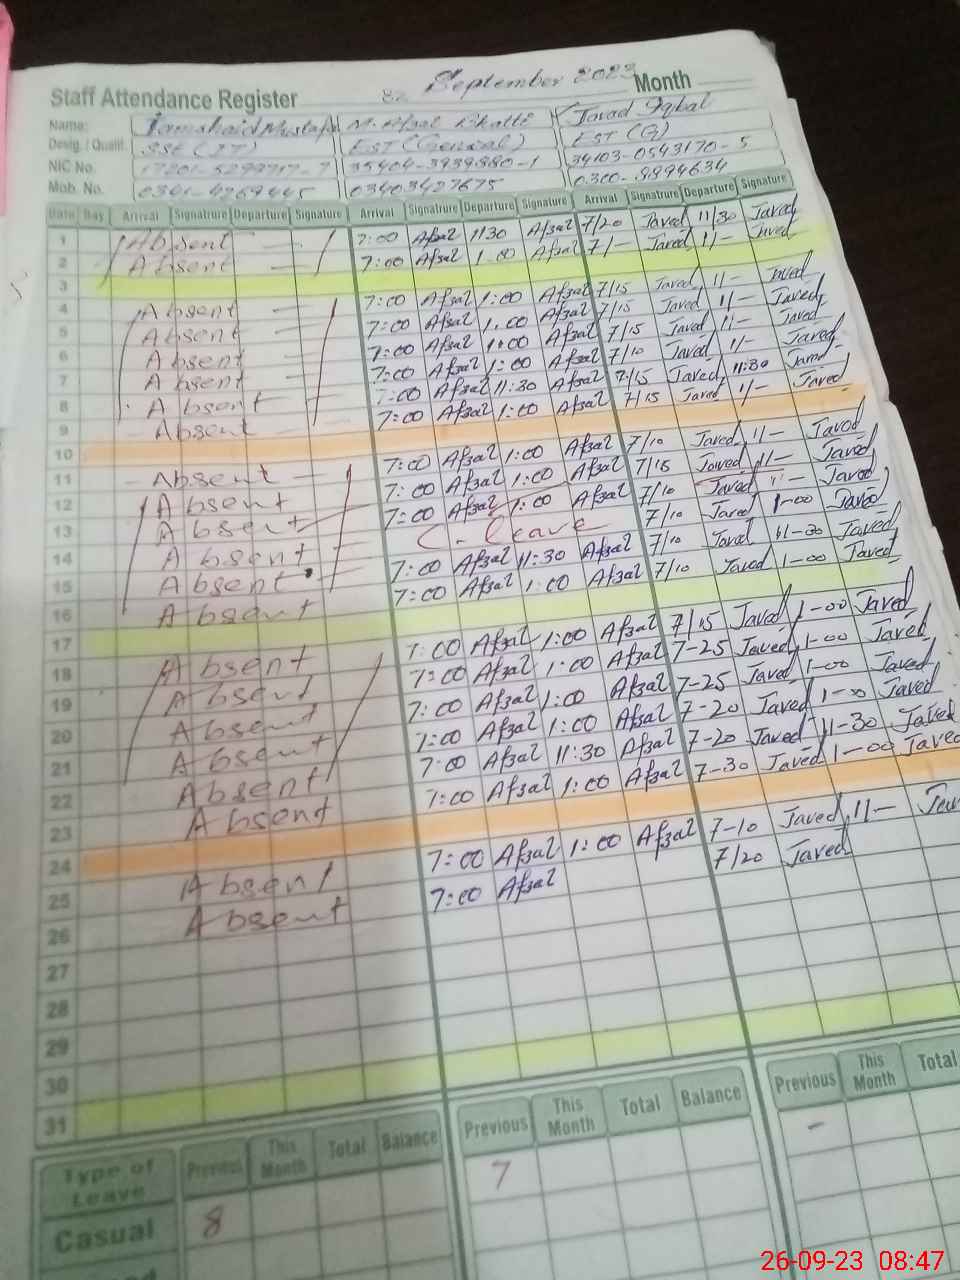 September 2023
Staff Attendance Register Month
Name: Jamshaid Mustafa M. Afzal Bhatti Javad Iqbal
Desig. / Qualif. SSE (IT) EST (General) EST (G)
NIC No. 35404-3939380-1 34103-0543170-5
Mob. No. 0341-4269445 03403427675 0300-8894634
Date Day Arrival Signatrure Departure Signature Arrival Signatrure Departure Signature Arrival Signatrure Departure Signature
1 Absent 7:00 Afzal 1130 Afzal 7/20 Javed 11/30 Javed
2 Absent 7:00 Afzal 1:00 Afzal 7/- Javed 1/- Javed
3
4 Absent 7:00 Afzal 1:00 Afzal 7/15 Javed 1/- Javed
5 Absent 7:00 Afzal 1:00 Afzal 7/15 Javed 1/- Javed
6 Absent 7:00 Afzal 1:00 Afzal 7/15 Javed 1/- Javed
7 Absent 7:00 Afzal 1:00 Afzal 7/10 Javed 1/- Javed
8 Absent 7:00 Afzal 11:30 Afzal 7/15 Javed 11:30 Javed
9 Absent 7:00 Afzal 1:00 Afzal 7/15 Javed 1/- Javed
10
11 Absent 7:00 Afzal 1:00 Afzal 7/10 Javed 1/- Javed
12 Absent 7:00 Afzal 1:00 Afzal 7/15 Javed 1/- Javed
13 Absent 7:00 Afzal 1:00 Afzal 7/10 Javed 1/- Javed
14 Absent C-leave 7/10 Javed 1-00 Javed
15 Absent 7:00 Afzal 11:30 Afzal 7/10 Javed 11-30 Javed
16 Absent 7:00 Afzal 1:00 Afzal 7/10 Javed 1-00 Javed
17
18 Absent 7:00 Afzal 1:00 Afzal 7/15 Javed 1-00 Javed
19 Absent 7:00 Afzal 1:00 Afzal 7-25 Javed 1-00 Javed
20 Absent 7:00 Afzal 1:00 Afzal 7-25 Javed 1-00 Javed
21 Absent 7:00 Afzal 1:00 Afzal 7-20 Javed 1-00 Javed
22 Absent 7:00 Afzal 11:30 Afzal 7-20 Javed 11-30 Javed
23 Absent 7:00 Afzal 1:00 Afzal 7-30 Javed 1-00 Javed
24
25 Absent 7:00 Afzal 1:00 Afzal 7-10 Javed 1/-
26 Absent 7:00 Afzal 7/20 Javed
27
28
29
30
31
Type of Leave Previous This Month Total Balance Previous This Month Total Balance Previous This Month Total
Casual 8 7 -
26-09-23 08:47